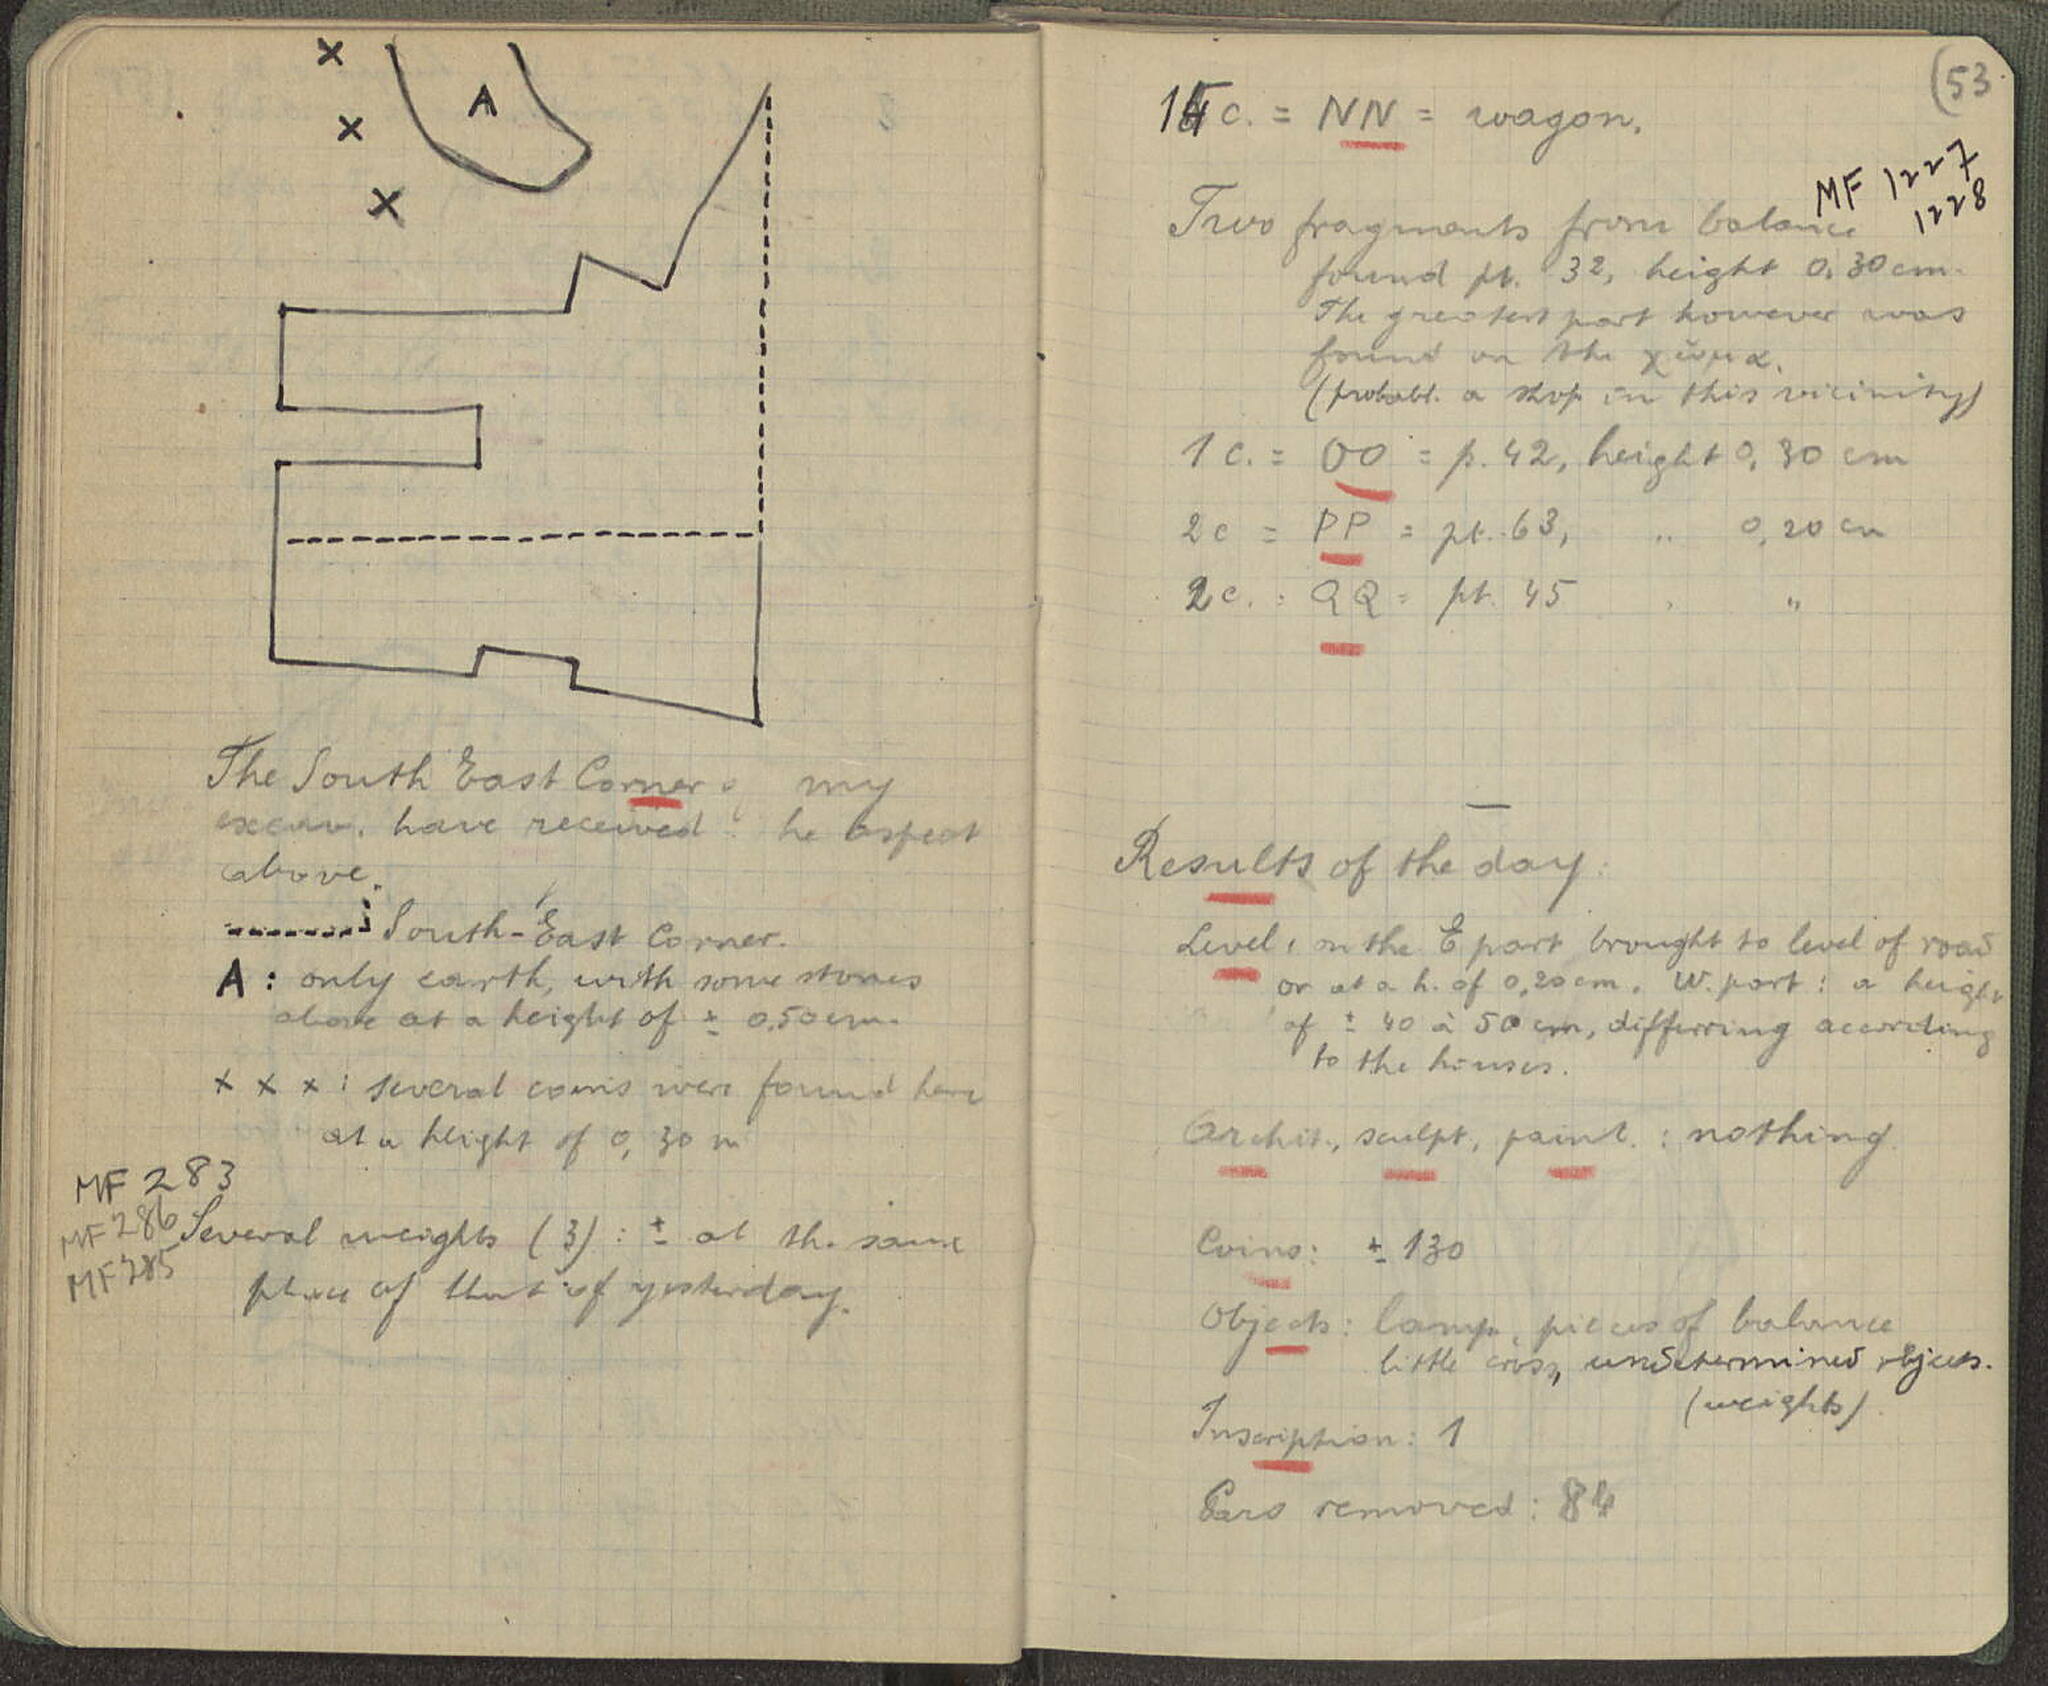 A
The South East Corner of my
excav. have received the aspect
above.
South-East Corner.
A : only earth, with some stones
above at a height of ± 0,50 cm.
x x x : several coins were found here
at a height of 0,30 m
MF 283
MF 286
MF 285
Several weights (3) : ± at the same
place of that of yesterday.
(53
c. = NN = wagon.
MF 1227
1228
Two fragments from balance
found pt. 32, height 0,30 cm.
The greatest part however was
found on the χῶμα.
(probabl. a shop in this vicinity)
1 c. = OO = p. 42, height 0,30 cm
2 c = PP = pt. 63, " 0,20 cm
2 c. = QQ = pt. 45 " "
Results of the day:
Level, on the E part brought to level of road
or at a h. of 0,20 cm. W. part : a height
of ± 40 à 50 cm, differring according
to the houses.
Archit., sculpt., paint. : nothing.
Coins: ± 130
Objects: lamp, pieces of balance
little cross, undetermined objects.
(weights).
Inscription: 1
Cars removed: 84